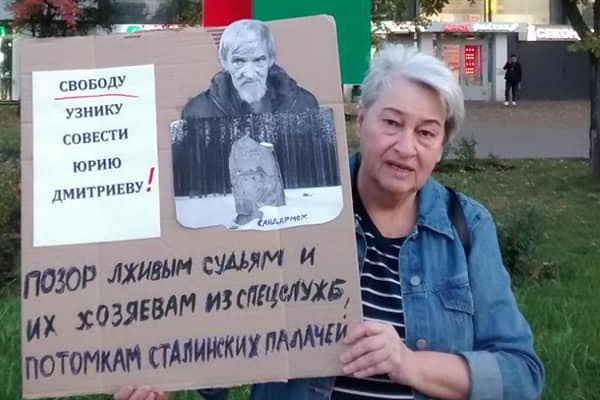 СВОБОДУ
УЗНИКУ
СОВЕСТИ
ЮРИЮ
ДМИТРИЕВУ!
САНДАРМОХ
ПОЗОР ЛЖИВЫМ СУДЬЯМ И
ИХ ХОЗЯЕВАМ ИЗ СПЕЦСЛУЖБ,
ПОТОМКАМ СТАЛИНСКИХ ПАЛАЧЕЙ